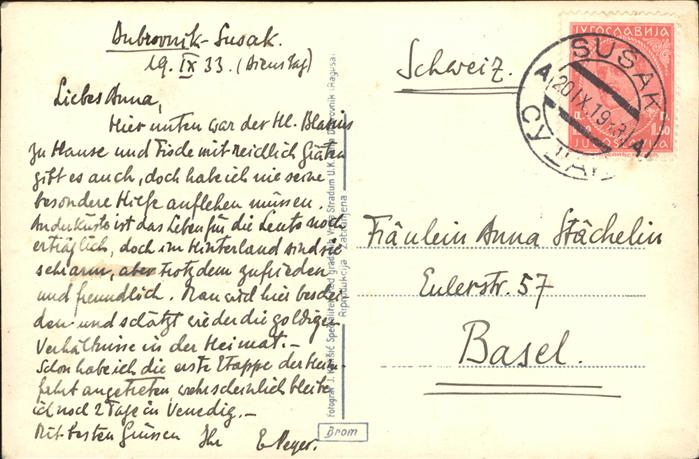 Dubrovnik-Susak.
19. IX 33. (Dienstag)
Liebes Anna,
Hier unten war der Hl. Blasius
zu Hause und Fische mit reichlich Gräten
gibt es auch, doch habe ich nie seine
besondere Hilfe anflehen müssen.
An der Küste ist das Leben für die Leute noch
erträglich, doch im Hinterland sind sie
sehr arm, aber trotzdem zufrieden
und freundlich. Man wird hier beschei-
den und schätzt wieder die goldigen
Verhältnisse in der Heimat. –
Schon habe ich die erste Etappe der Heim-
fahrt angetreten wahrscheinlich bleibe
ich noch 2 Tage in Venedig. –
Mit besten Grüssen Ihr E. Meyer.
Fotograf J. Specialiteti Stradun Dubrovnik (Ragusa)
Reprodukcija zabranjena
Brom
Schweiz.
ЈУГОСЛАВИЈА
1.50
JUGOSLAVIJA
SUŠAK
20 IX 19
СУШАК
Fräulein Anna Stächelin
Eulerstr. 57
Basel.